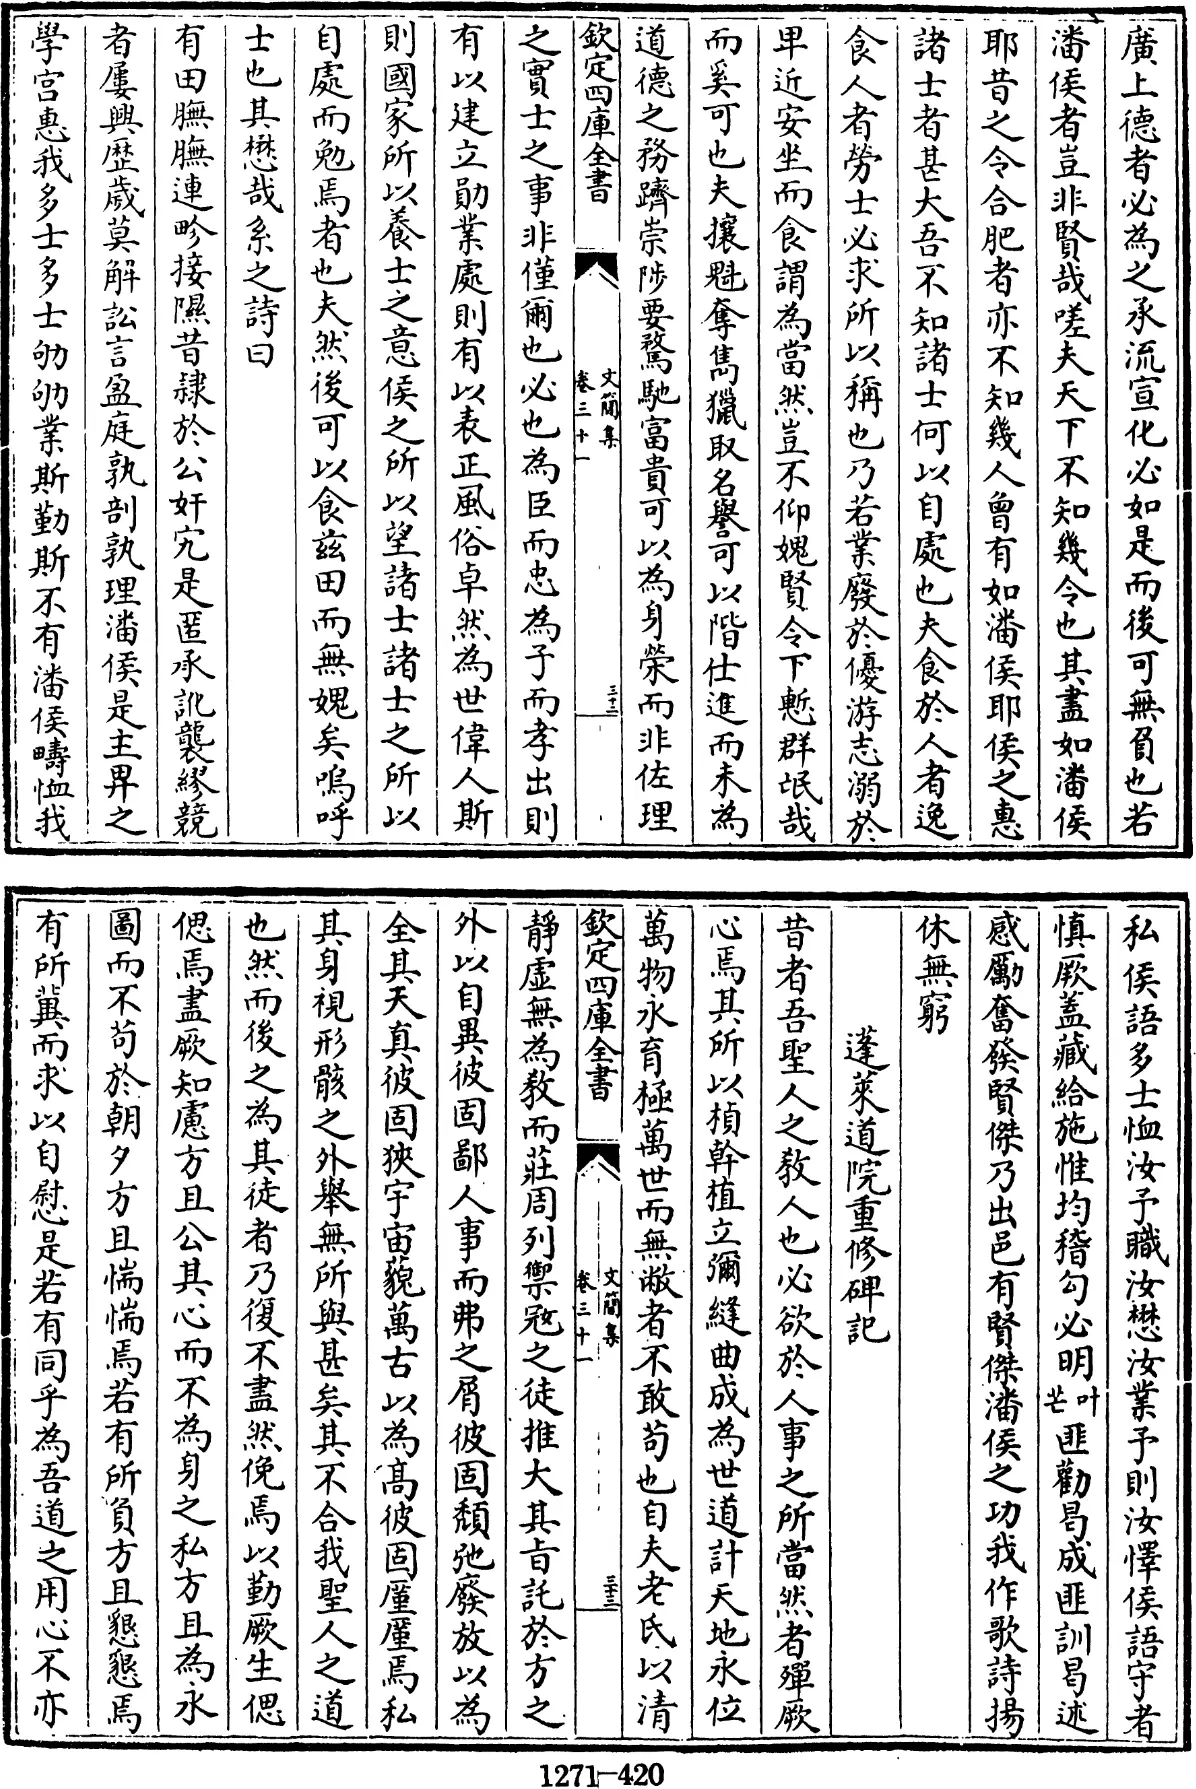 廣上德者必為之承流宣化必如是而後可無負也若
潘侯者豈非賢哉嗟夫天下不知幾令也其盡如潘侯
耶昔之令合肥者亦不知幾人曾有如潘侯耶侯之惠
諸士者甚大吾不知諸士何以自處也夫食於人者逸
食人者勞士必求所以稱也乃若業廢於優游志溺於
卑近安坐而食謂為當然豈不仰媿賢令下慙群氓哉
而奚可也夫攘魁奪雋獵取名譽可以階仕進而未為
道德之務躋崇陟要騖馳富貴可以為身榮而非佐理
欽定四庫全書
文簡集
卷三十一
三十二
之實士之事非僅爾也必也為臣而忠為子而孝出則
有以建立勛業處則有以表正風俗卓然為世偉人斯
則國家所以養士之意侯之所以望諸士諸士之所以
自處而勉焉者也夫然後可以食茲田而無媿矣嗚呼
士也其懋哉系之詩曰
有田膴膴連畛接隰昔隸於公奸宄是匿承訛襲繆競
者屢興歷歲莫解訟言盈庭孰剖孰理潘侯是主畀之
學宮惠我多士多士劬劬業斯勤斯不有潘侯疇恤我
私侯語多士恤汝予職汝懋汝業予則汝懌侯語守者
慎厥蓋藏給施惟均稽勾必明叶芒匪勸曷成匪訓曷述
感勵奮發賢傑乃出邑有賢傑潘侯之功我作歌詩揚
休無窮
蓬萊道院重修碑記
昔者吾聖人之教人也必欲於人事之所當然者殫厥
心焉其所以楨幹植立彌縫曲成為世道計天地永位
萬物永育極萬世而無敝者不敢苟也自夫老氏以清
欽定四庫全書
文簡集
卷三十一
三十三
靜虛無為教而莊周列禦寇之徒推大其旨託於方之
外以自異彼固鄙人事而弗之屑彼固頹弛廢放以為
全其天真彼固狹宇宙藐萬古以為高彼固廑廑焉私
其身視形骸之外舉無所與甚矣其不合我聖人之道
也然而後之為其徒者乃復不盡然俛焉以勤厥生偲
偲焉盡厥知慮方且公其心而不為身之私方且為永
圖而不苟於朝夕方且惴惴焉若有所負方且懇懇焉
有所冀而求以自慰是若有同乎為吾道之用心不亦
1271-420